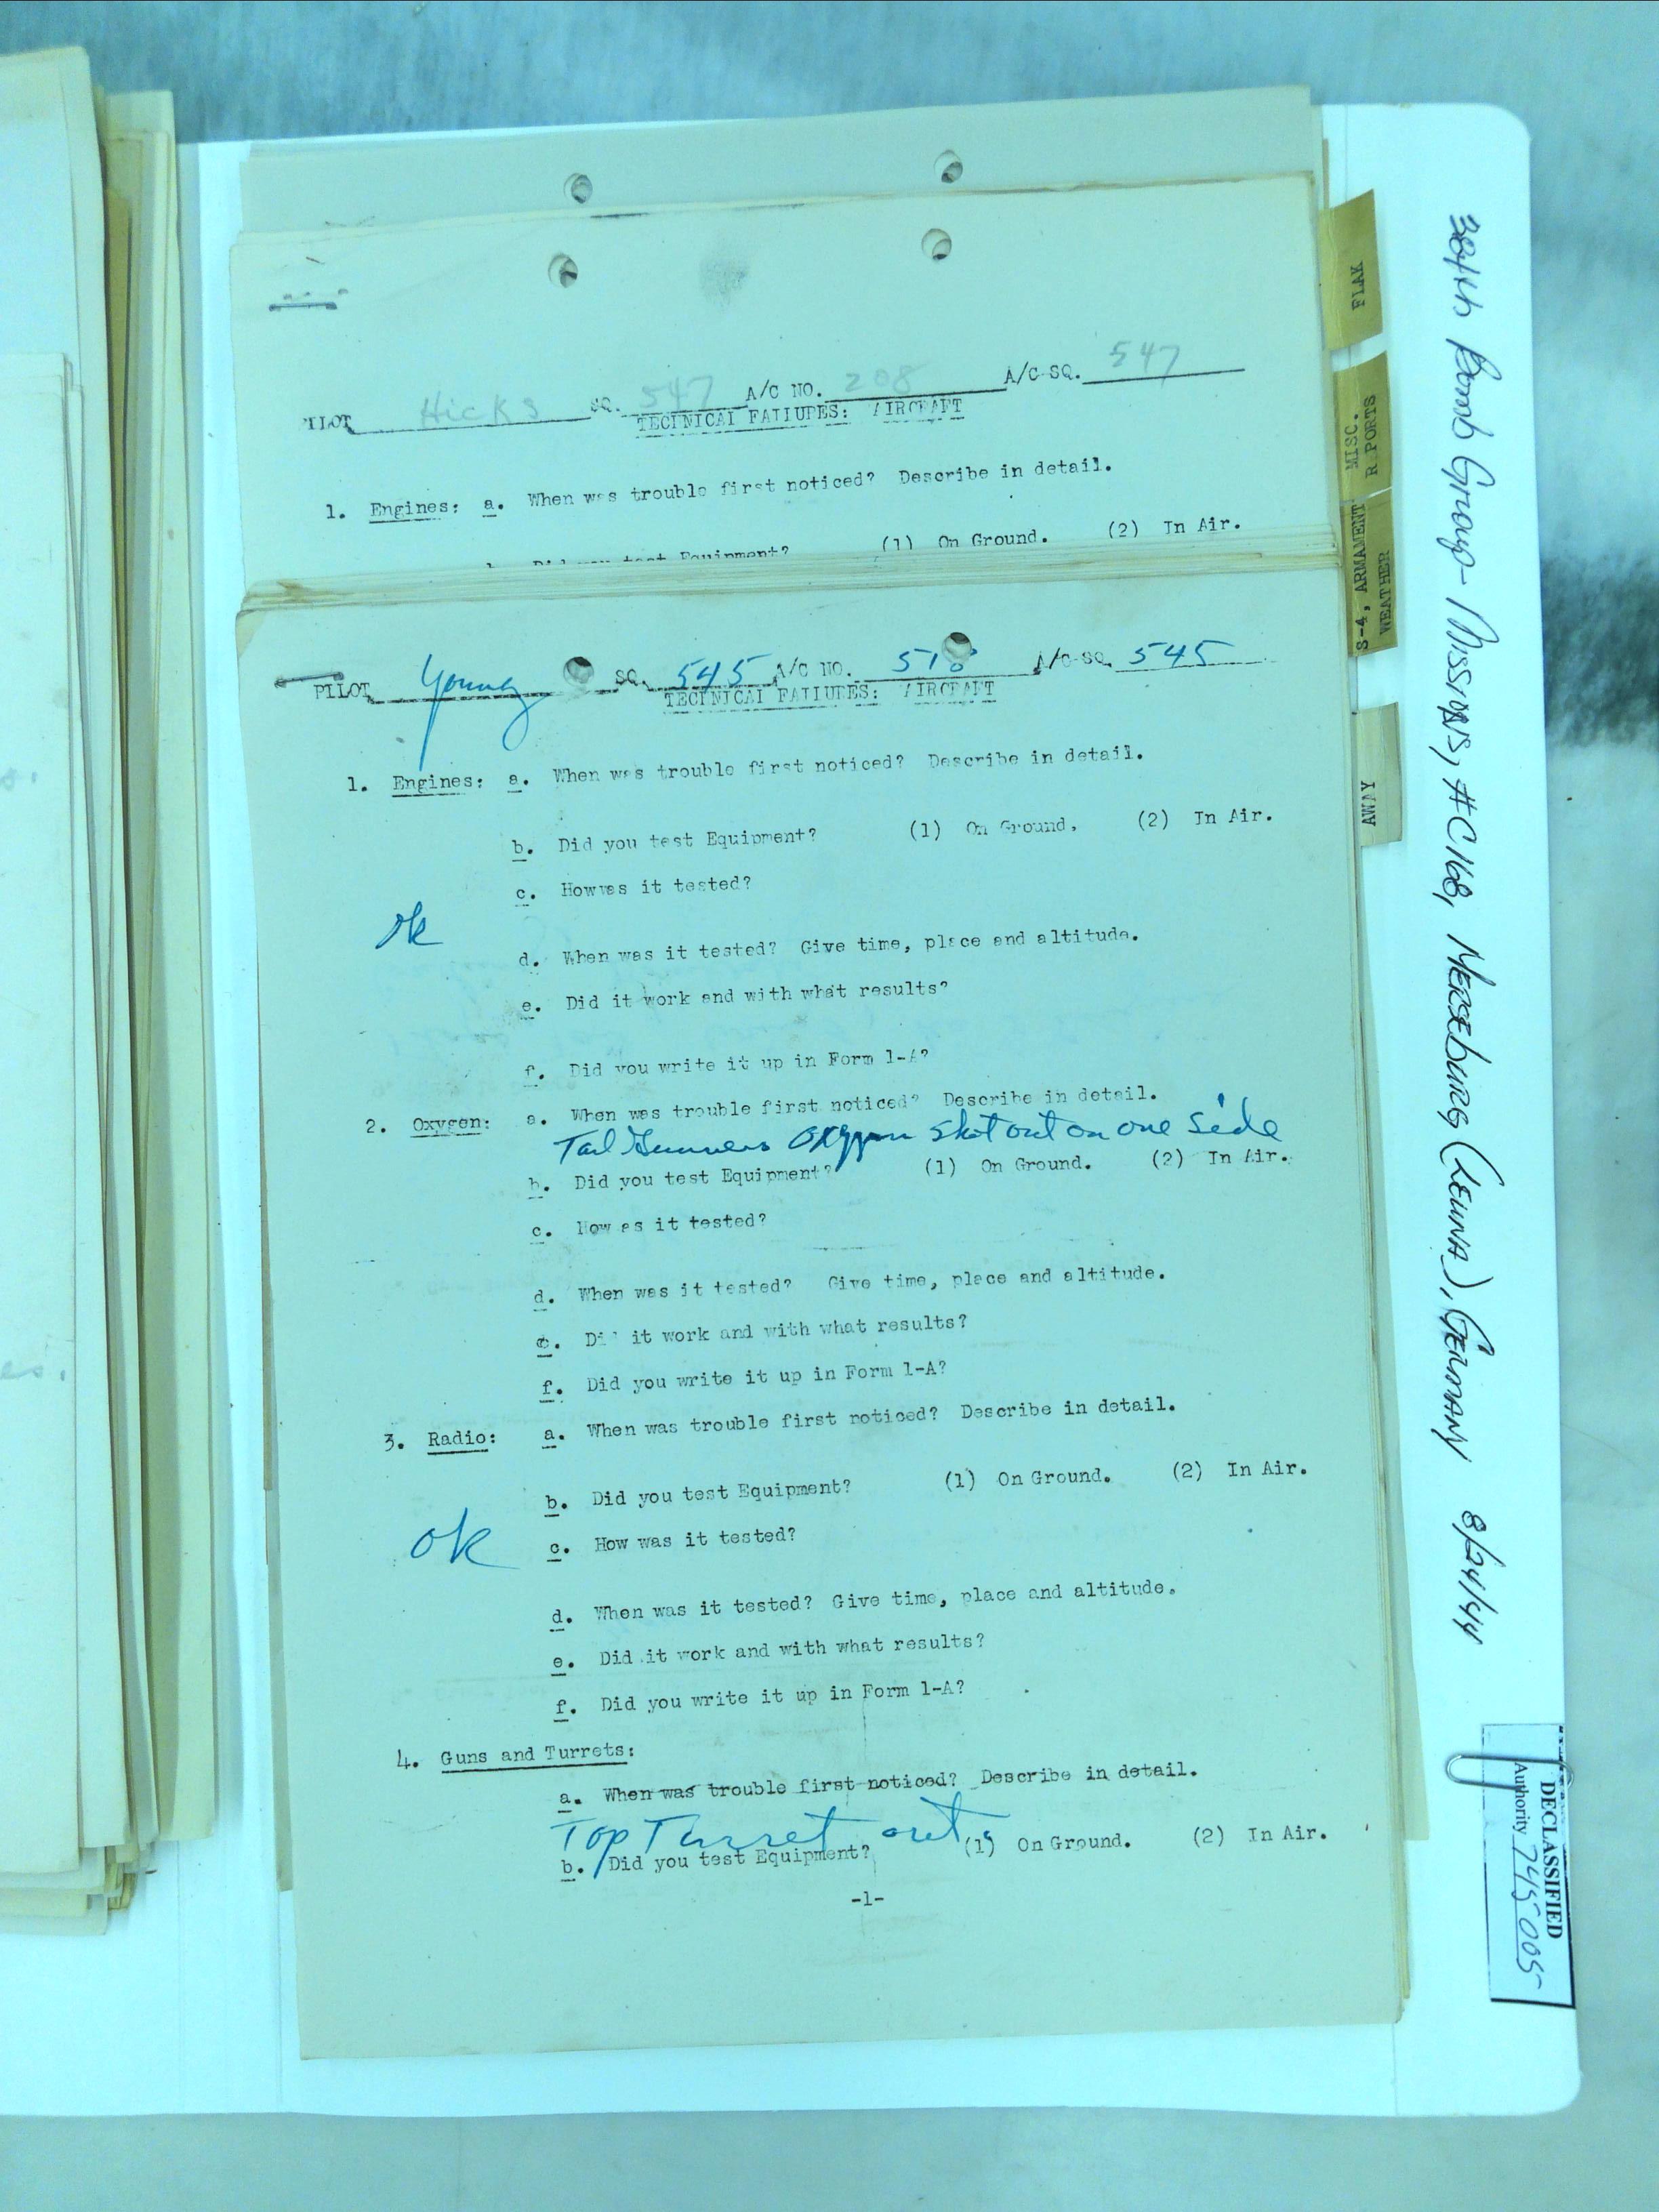 Hicks 547 208 547
PILOT SQ. A/C NO. A/C SQ.
TECHNICAL FAILURES: AIRCRAFT
1. Engines: a. When was trouble first noticed? Describe in detail.
Did you test Equipment? (1) On Ground. (2) In Air.
PILOT Young SQ. 545 A/C NO. A/C SQ. 545
TECHNICAL FAILURES: AIRCRAFT
1. Engines: a. When was trouble first noticed? Describe in detail.
b. Did you test Equipment? (1) On Ground. (2) In Air.
c. How was it tested?
ok
d. When was it tested? Give time, place and altitude.
e. Did it work and with what results?
f. Did you write it up in Form 1-A?
2. Oxygen: a. When was trouble first noticed? Describe in detail.
Tail Gunners Oxygen shot out on one side
b. Did you test Equipment? (1) On Ground. (2) In Air.
c. How as it tested?
d. When was it tested? Give time, place and altitude.
e. Did it work and with what results?
f. Did you write it up in Form 1-A?
3. Radio: a. When was trouble first noticed? Describe in detail.
b. Did you test Equipment? (1) On Ground. (2) In Air.
ok c. How was it tested?
d. When was it tested? Give time, place and altitude.
e. Did it work and with what results?
f. Did you write it up in Form 1-A?
4. Guns and Turrets:
a. When was trouble first noticed? Describe in detail.
Top Turret out.
b. Did you test Equipment? (1) On Ground. (2) In Air.
-1-
FLAK
MISC.
R PORTS
S-4, ARMAMENT
WEATHER
AWAY
384th Bomb Group - Missions, #C168, Merseburg (Leuna), Germany 8/24/44
DECLASSIFIED
Authority 745005